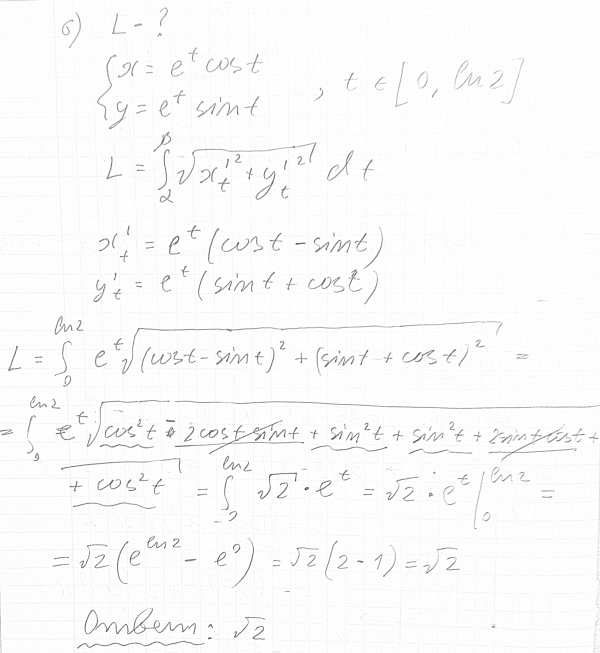 б) L - ?
{ x = e^t cos t
{ y = e^t sin t , t ∈ [0, ln 2]
L = ∫_α^β √(x'_t² + y'_t²) dt
x'_t = e^t (cos t - sin t)
y'_t = e^t (sin t + cos t)
L = ∫_0^{ln 2} e^t √((cos t - sin t)² + (sin t + cos t)²) =
= ∫_0^{ln 2} e^t √(cos² t - 2 cos t sin t + sin² t + sin² t + 2 sin t cos t +
+ cos² t) = ∫_0^{ln 2} √2 · e^t = √2 · e^t |_0^{ln 2} =
= √2 (e^{ln 2} - e^0) = √2 (2 - 1) = √2
Ответ: √2